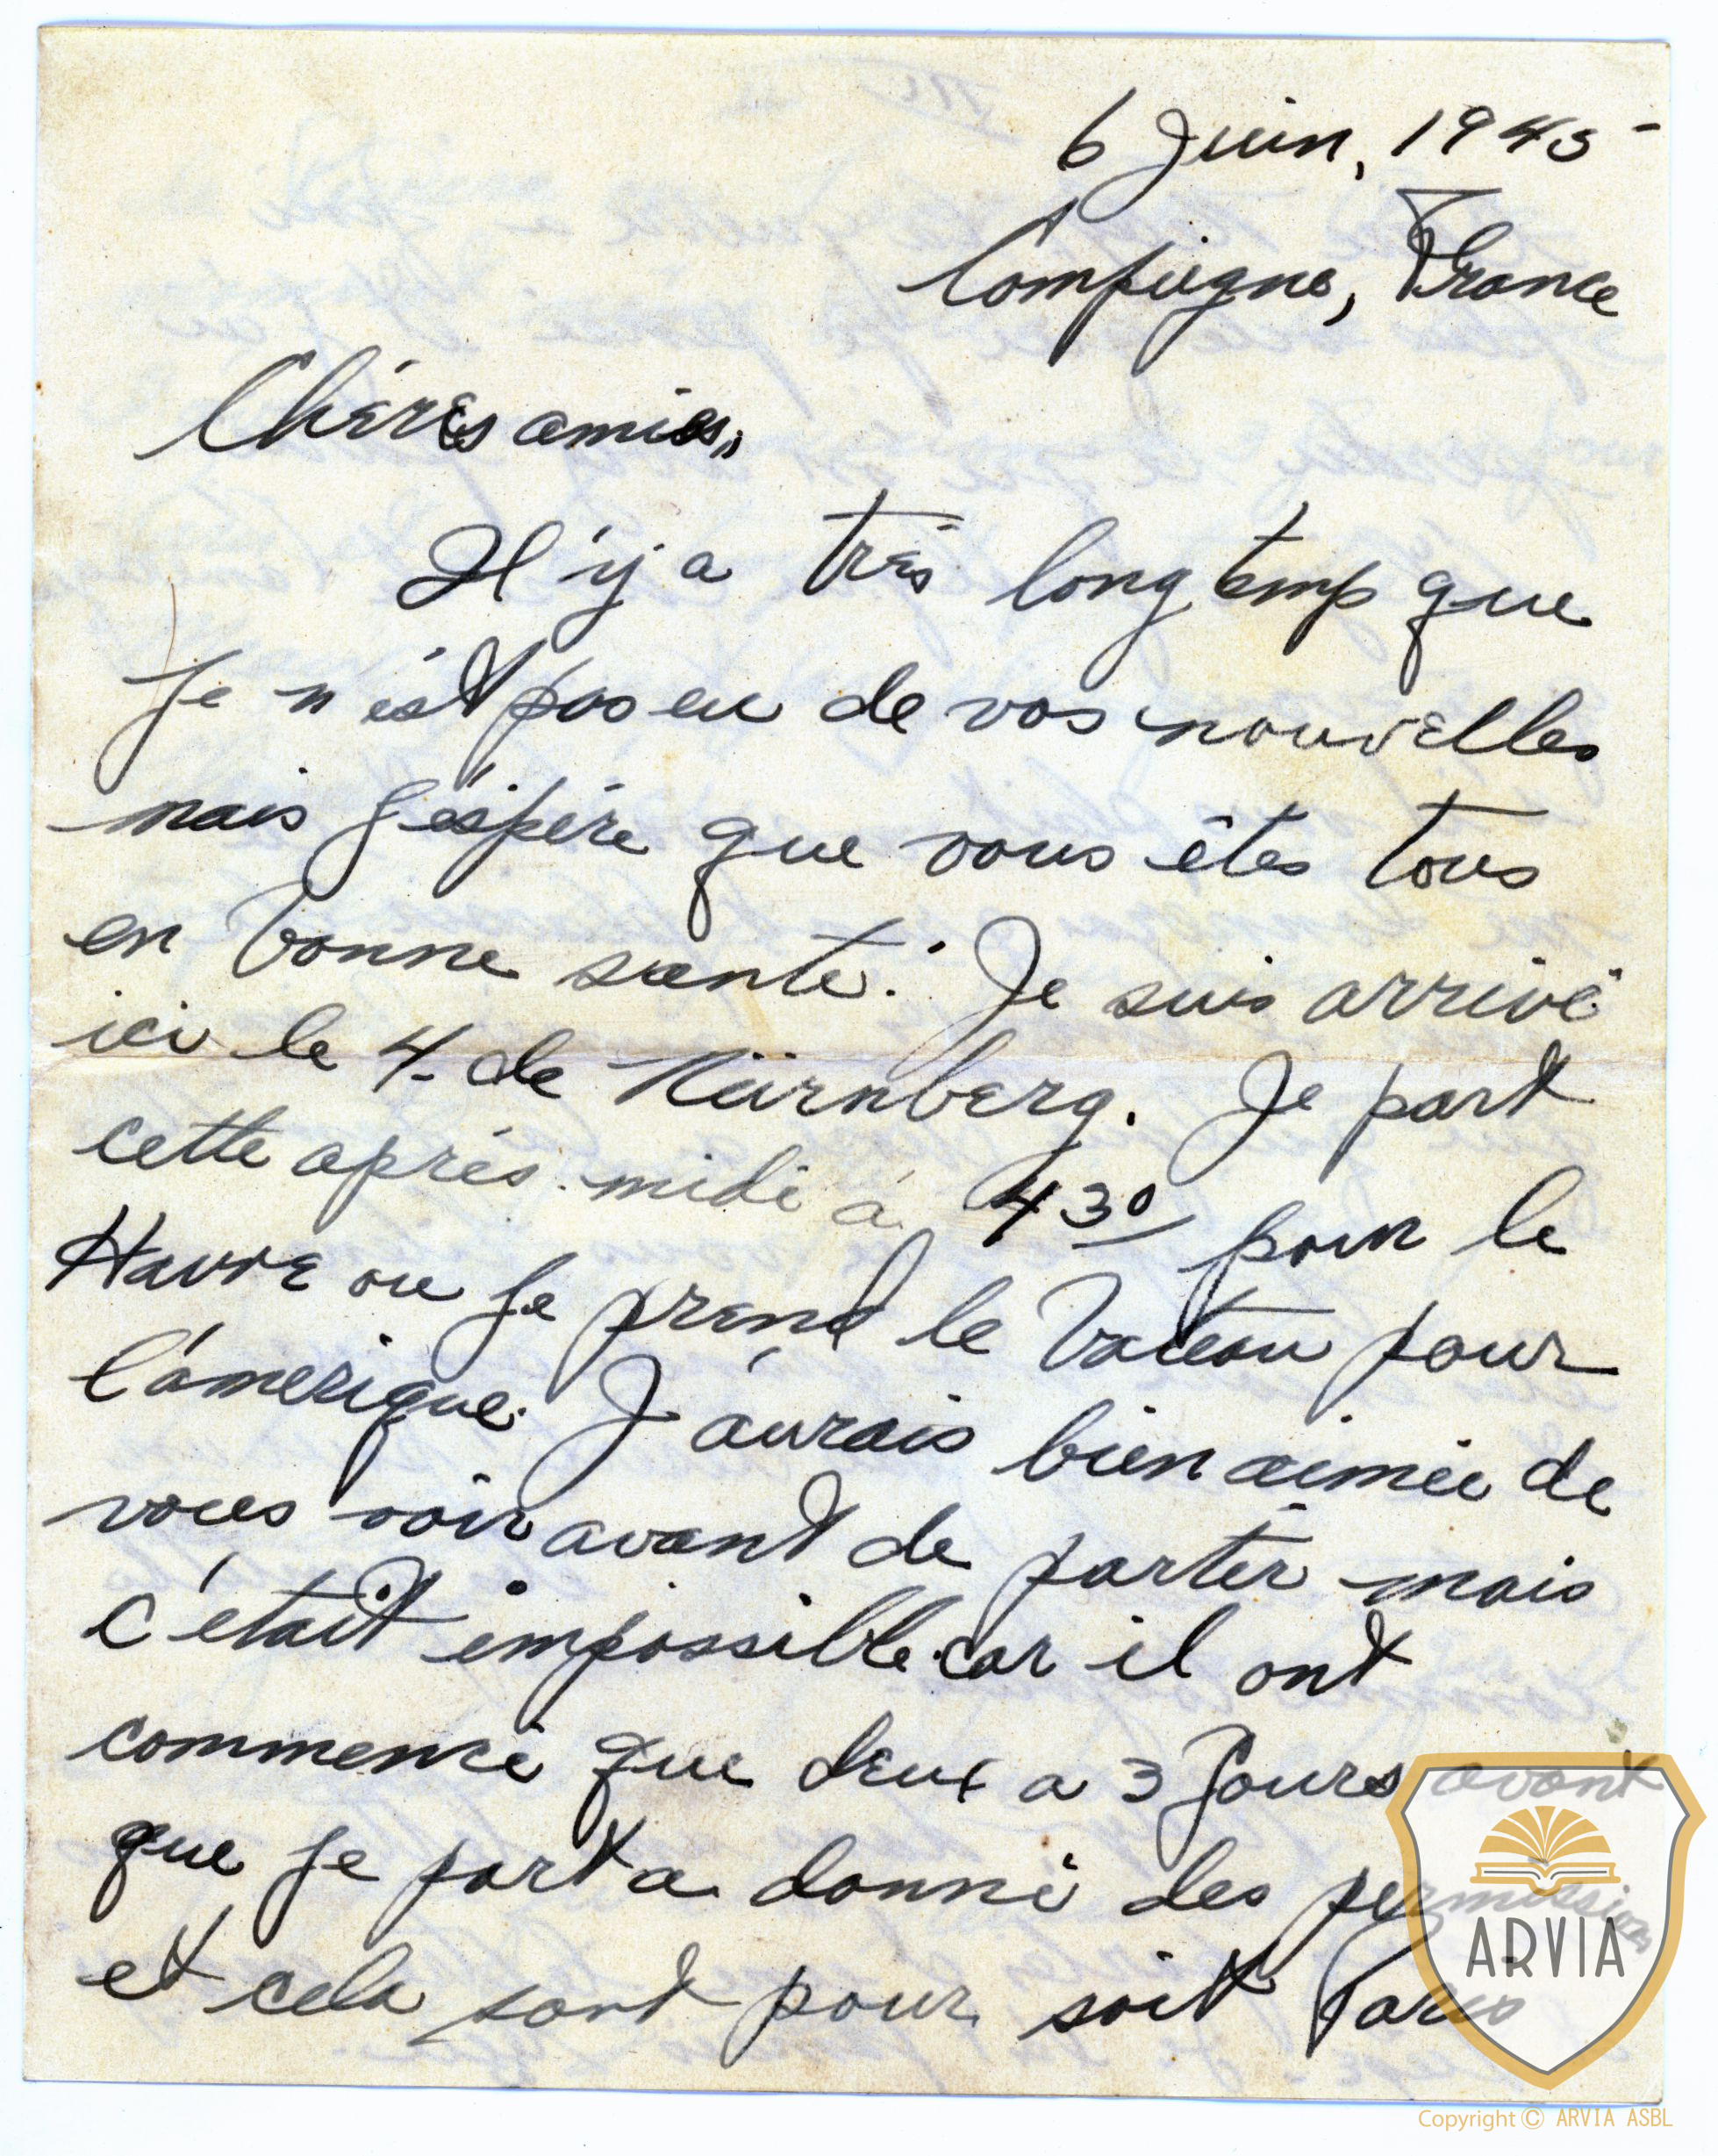 6 Juin, 1945-
Compiegne, France
Chéres amies,,
Il'y a très longtemp que
Je n'est pas eu de vos nouvelles
mais J'éspère que vous êtes tous
en bonne sante. Je suis arrivé
ici le 4 de Nürnberg. Je part
cette aprés-midi à 430 pour le
Havre ou Je prend le bateau pour
l'amerique. J'aurais bien aimée de
vous voir avant de partir mais
c'était impossible car il ont
commencé que deux a 3 Jours avant
que Je part a donné des permissions
et cela sont pour soit Paris
ARVIA
Copyright © ARVIA ASBL